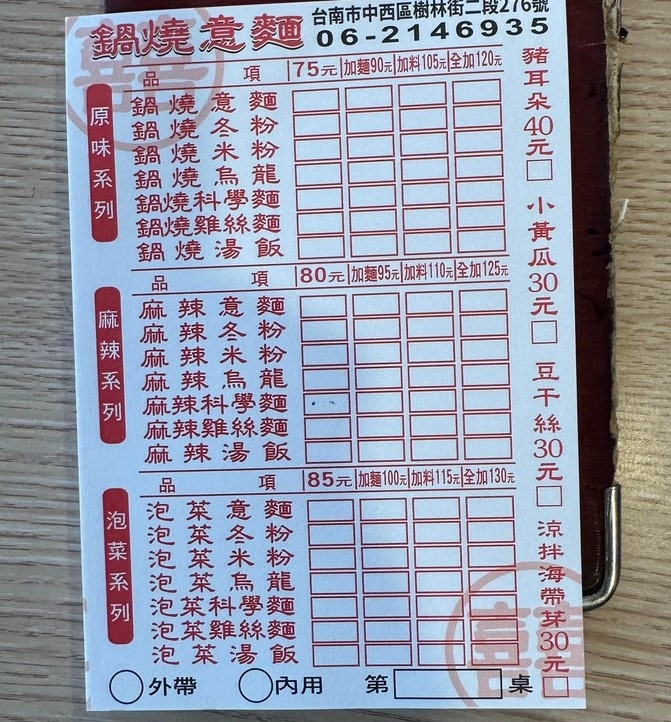 鍋燒意麵
台南市中西區樹林街二段276號
06-2146935
品項 75元 加麵90元 加料105元 全加120元
原味系列
鍋燒意麵
鍋燒冬粉
鍋燒米粉
鍋燒烏龍
鍋燒科學麵
鍋燒雞絲麵
鍋燒湯飯
品項 80元 加麵95元 加料110元 全加125元
麻辣系列
麻辣意麵
麻辣冬粉
麻辣米粉
麻辣烏龍
麻辣科學麵
麻辣雞絲麵
麻辣湯飯
品項 85元 加麵100元 加料115元 全加130元
泡菜系列
泡菜意麵
泡菜冬粉
泡菜米粉
泡菜烏龍
泡菜科學麵
泡菜雞絲麵
泡菜湯飯
豬耳朵40元
小黃瓜30元
豆干絲30元
涼拌海帶芽30元
外帶 內用 第 桌
囍
囍